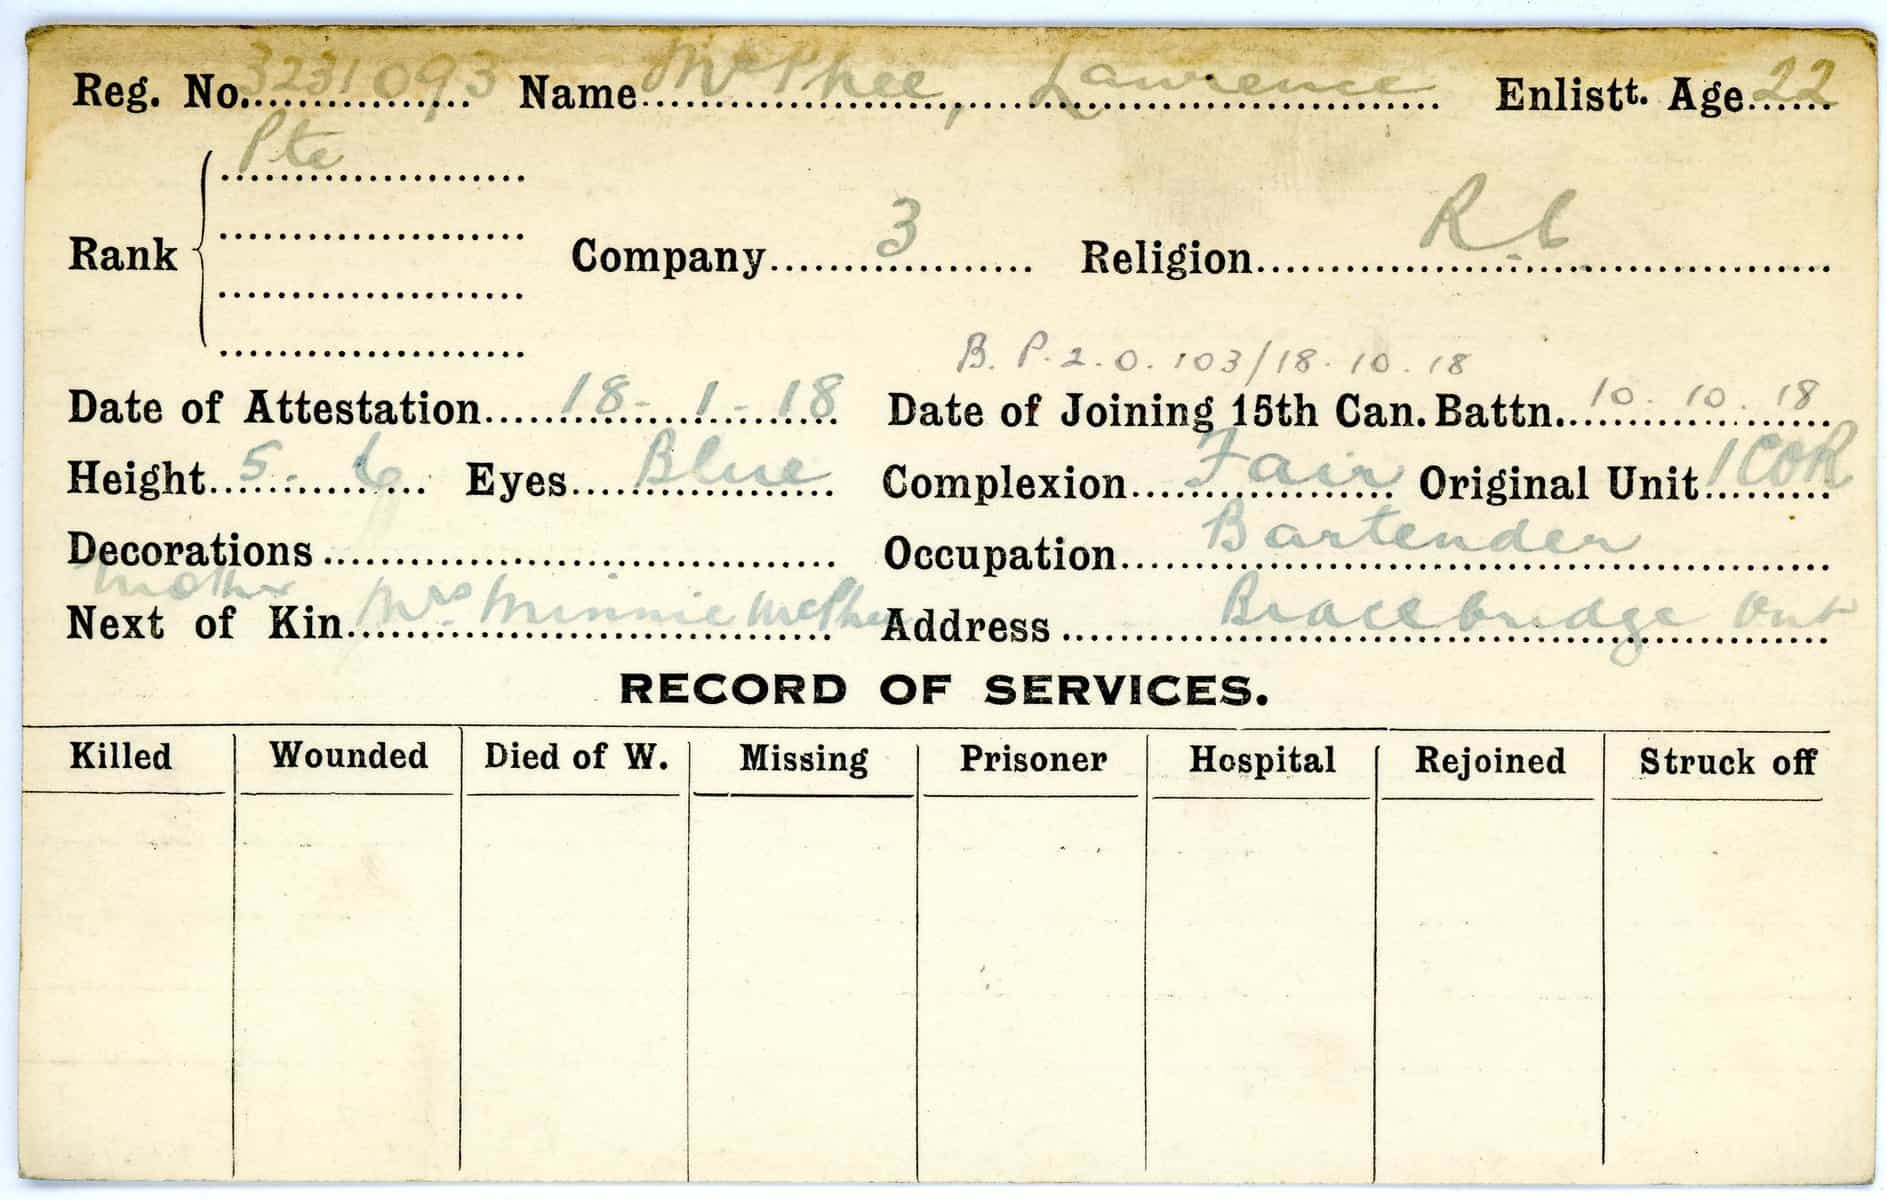 Reg. No. 3231093 Name McPhee, Lawrence Enlistt. Age 22
Pte
Rank Company 3 Religion R.C.
B. P. 2. 0. 103/18. 10. 18
Date of Attestation 18 - 1 - 18 Date of Joining 15th Can. Battn. 10. 10. 18
Height 5. 6 Eyes Blue Complexion Fair Original Unit 1 COR
Decorations Occupation Bartender
mother
Next of Kin Mrs Minnie McPhee Address Bracebridge Ont
RECORD OF SERVICES.
Killed Wounded Died of W. Missing Prisoner Hospital Rejoined Struck off